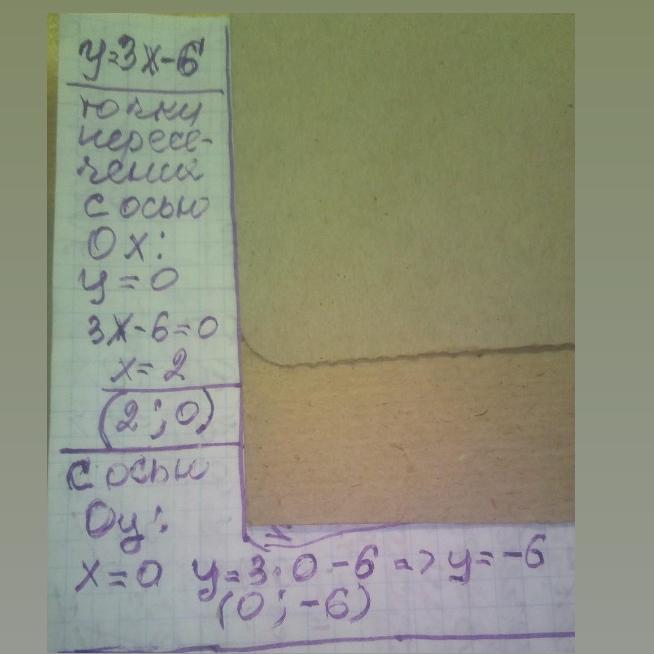 y=3x-6
точки
пересе-
чения
с осью
Ox:
y=0
3x-6=0
x=2
(2;0)
с осью
Oy:
x=0 y=3·0-6 => y=-6
(0;-6)